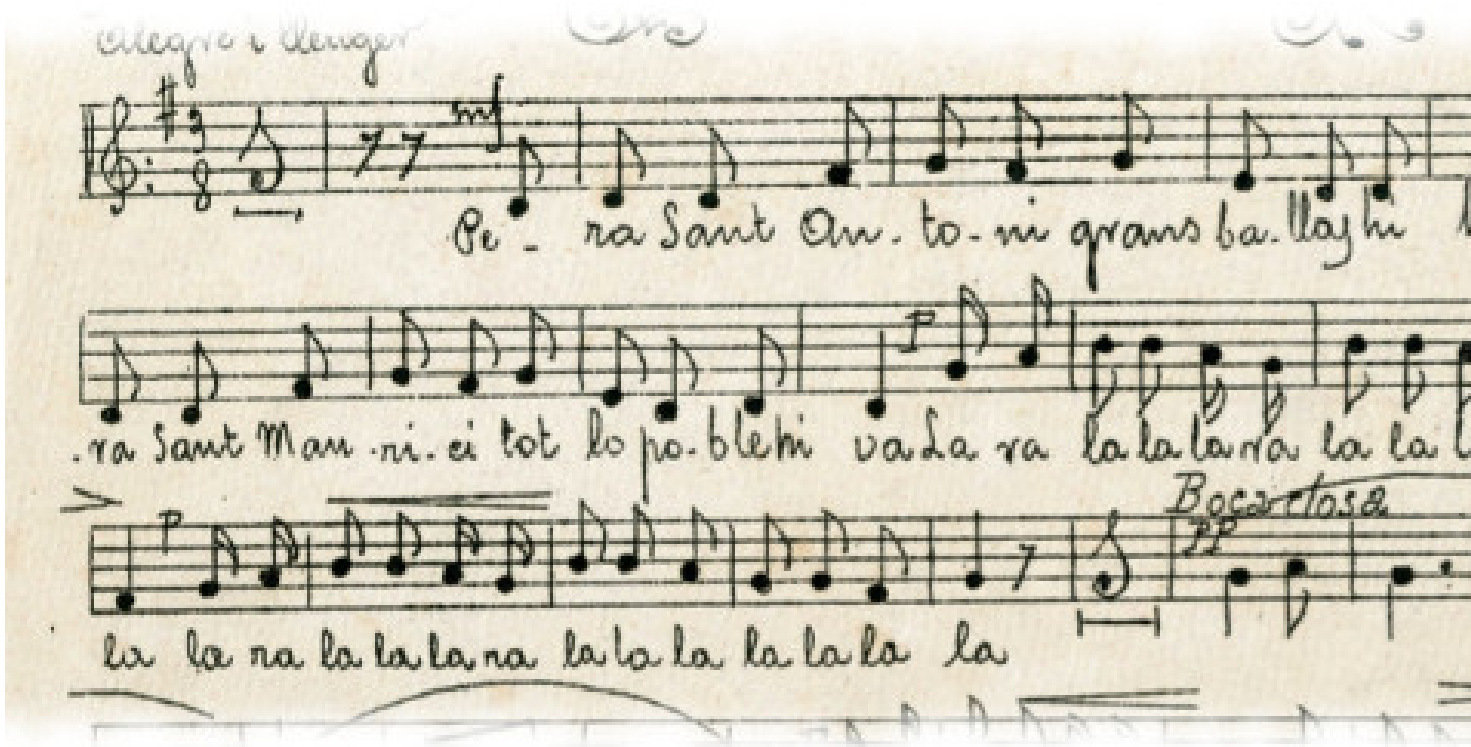 Alegre i lleuger
3 8 mf
Pe - ra Sant An - to - ni grans ba - llas hi
p
. ra Sant Mau - ri - ci tot lo po - blehi va La ra la la la ra la la
Boca closa
p pp
la la ra la la la ra la la la la la la la